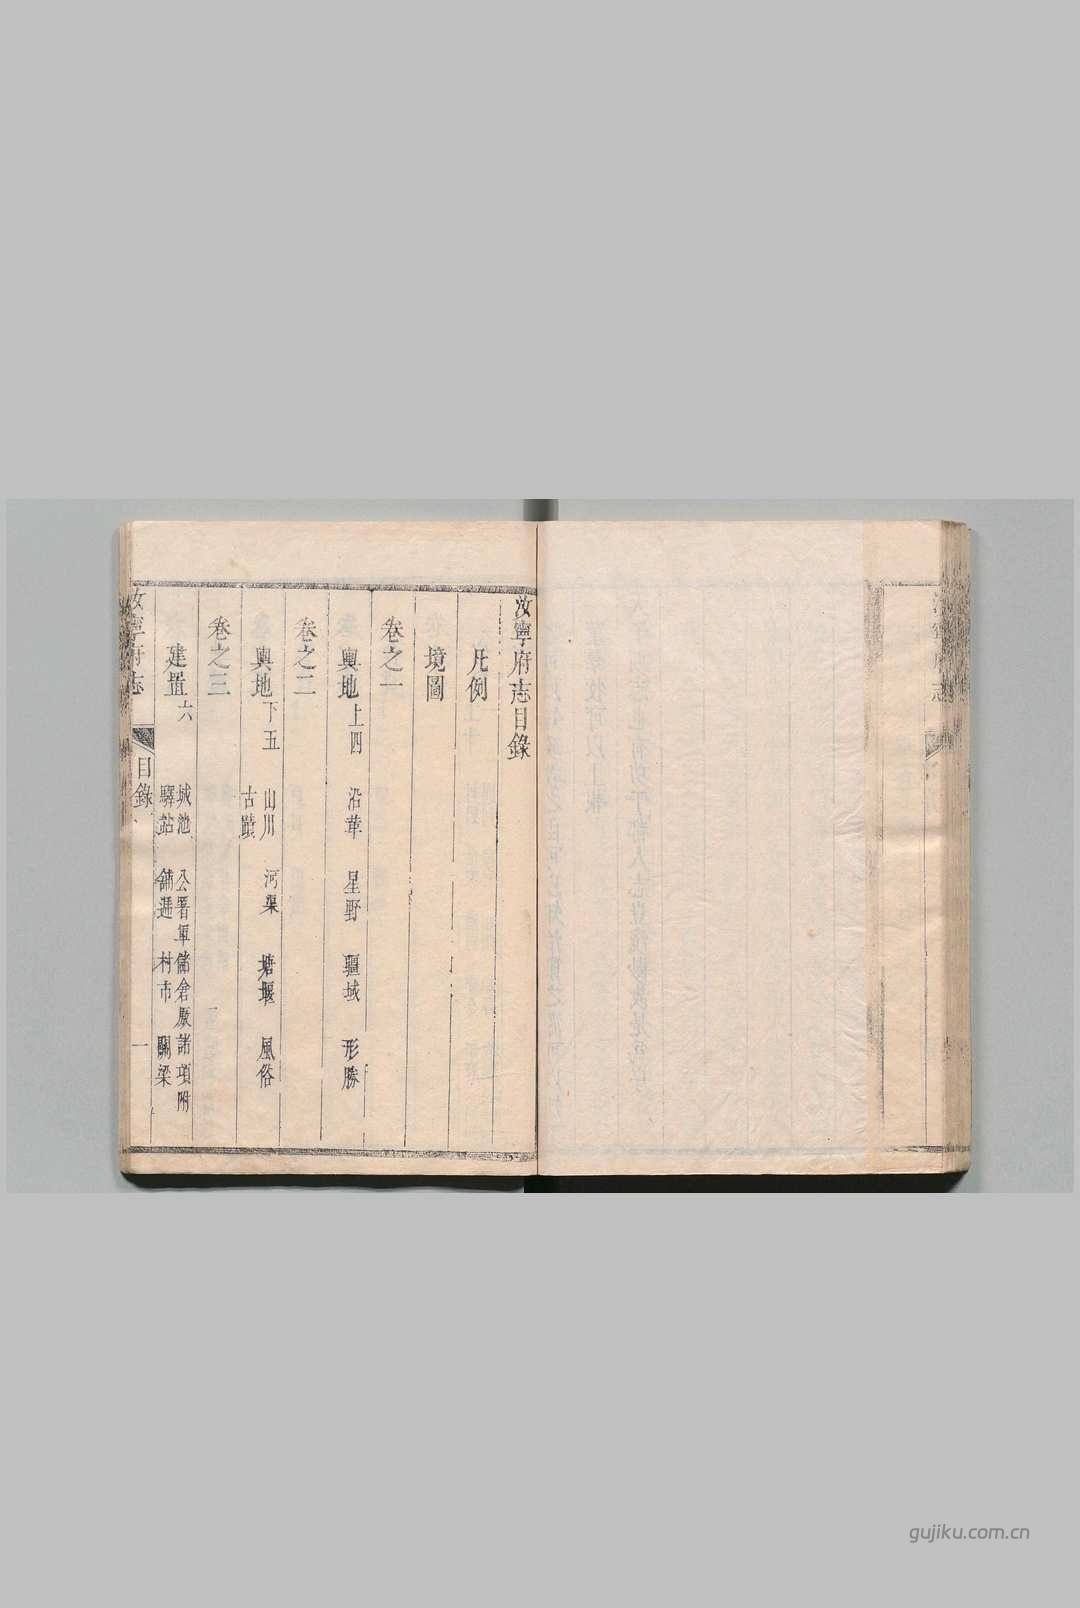 汝寧府志目錄
凡例
境圖
卷之一
輿地上四 沿革 星野 疆域 形勝
卷之二
輿地下五 山川 河渠 塘堰 風俗
古蹟
卷之三
建置六 城池 公署軍儲倉厫諸項附
驛站 舖遞 村市 關梁
汝寧府志 目錄 一
gujiku.com.cn